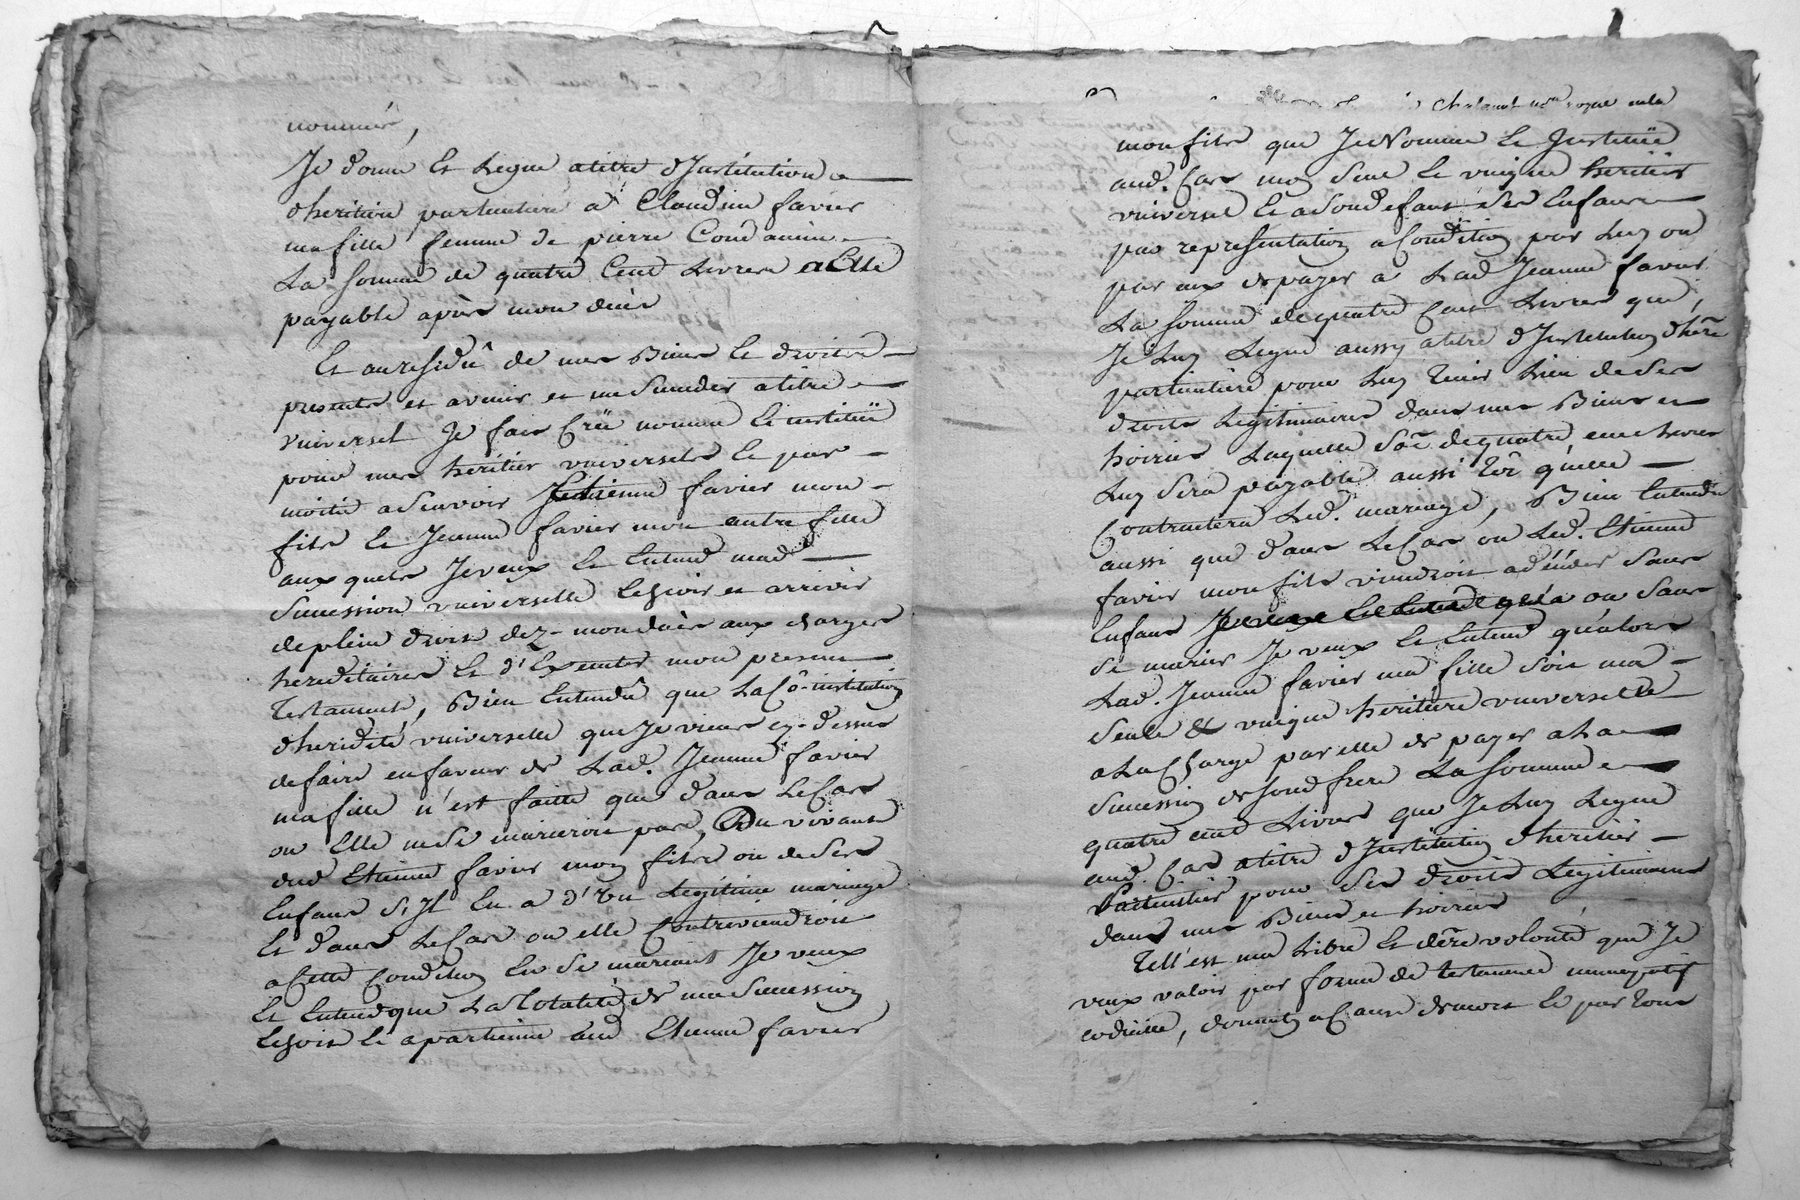 nommée,
Je donne et legue a titre d'Jnstitution
d'heritiere particuliere à Claudine favier
ma fille femme de pierre Condamin
La somme de quatre Cent Livres a Elle
payable après mon decès
Et au residû de mes Biens et droits
presents et avenir et me succeder a titre
vniversel Je fais Créé nomme et instituë
pour mes heritier vniversels et par
moitié a scavoir Etienne favier mon
fils et Jeanne favier mon autre fille
aux quels Je veux et Entend mad
succession vniverselle Echoir et arriver
de plein droit dez-mon decès aux charges
hereditaires et d'Executer mon present
Testament, Bien Entendû que La Cô-institution
d'heridité vniverselle que Je viens cy-dessus
de faire en faveur de Lad. Jeanne favier
ma fille n'est faitte que dans Le Cas
ou Elle ne se marieroit pas, Du vivant
dud Etienne favier mon fils ou de ses
Enfans s'Jl En a d'vn Legitime mariage
Et dans Le Cas ou elle Contreviendroit
a Cette Condition En se mariant Je veux
Et Entend que La totalité de ma succession
Echoit et apartienne aud Etienne favier
mon fils que Je Nomme et Jnstituë
aud. Cas mon seul et vnique heritier
vniversel Et a son defaut ses Enfans
par representation a Condition par Luy ou
par eux de payer a Lad Jeanne favier
La somme de quatre Cent Livres que
Je Luy Legue aussy a titre d'Jnstitution d'hêre
particulière pour Luy tenir Lieu de ses
droits Legitimaires dans mes Biens et
hoiries Laquelle sôe de quatre cent Livres
Luy sera payable aussi tôt qu'elle
Contractera Led. mariage, Bien Entendu
aussi que dans Le Cas ou Led. Etienne
favier mon fils viendroit a décéder sans
Enfans Je veux et Entend qu'a ou sans
se marier Je veux et Entend qu'alors
Lad. Jeanne favier ma fille soit ma
seule & vnique heritière vniverselle
a La Charge par elle de payer a La
succession de sond frere La somme
quatre cent Livres que Je Luy Legue
aud. Cas a titre d'Jnstitution d'heritier
Particulier pour ses droits Legitimaires
dans mes Biens et hoiries
Tell'est ma Libre et dêre volonté que Je
veux valoir par forme de testament nuncupatif
codicille, donnation a Cause de mort et par tous